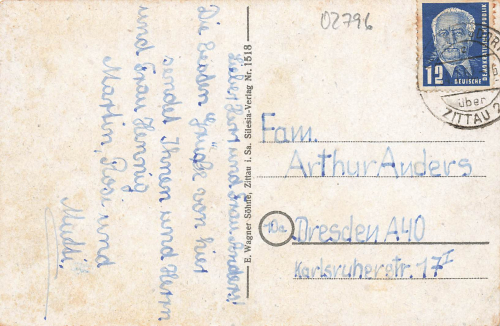 02796
Lieber Herr und Frau Anders!
Die besten Grüße von hier
sendet Ihnen und Herrn
und Frau Hennig
Martin, Rosi und
Mutti.
E. Wagner Söhne, Zittau i. Sa. Silesia-Verlag Nr. 1518
12
DEUTSCHE
DEMOKRATISCHE REPUBLIK
über
ZITTAU 2
Fam.
Arthur Anders
10a Dresden A40
Karlsruherstr. 17 I